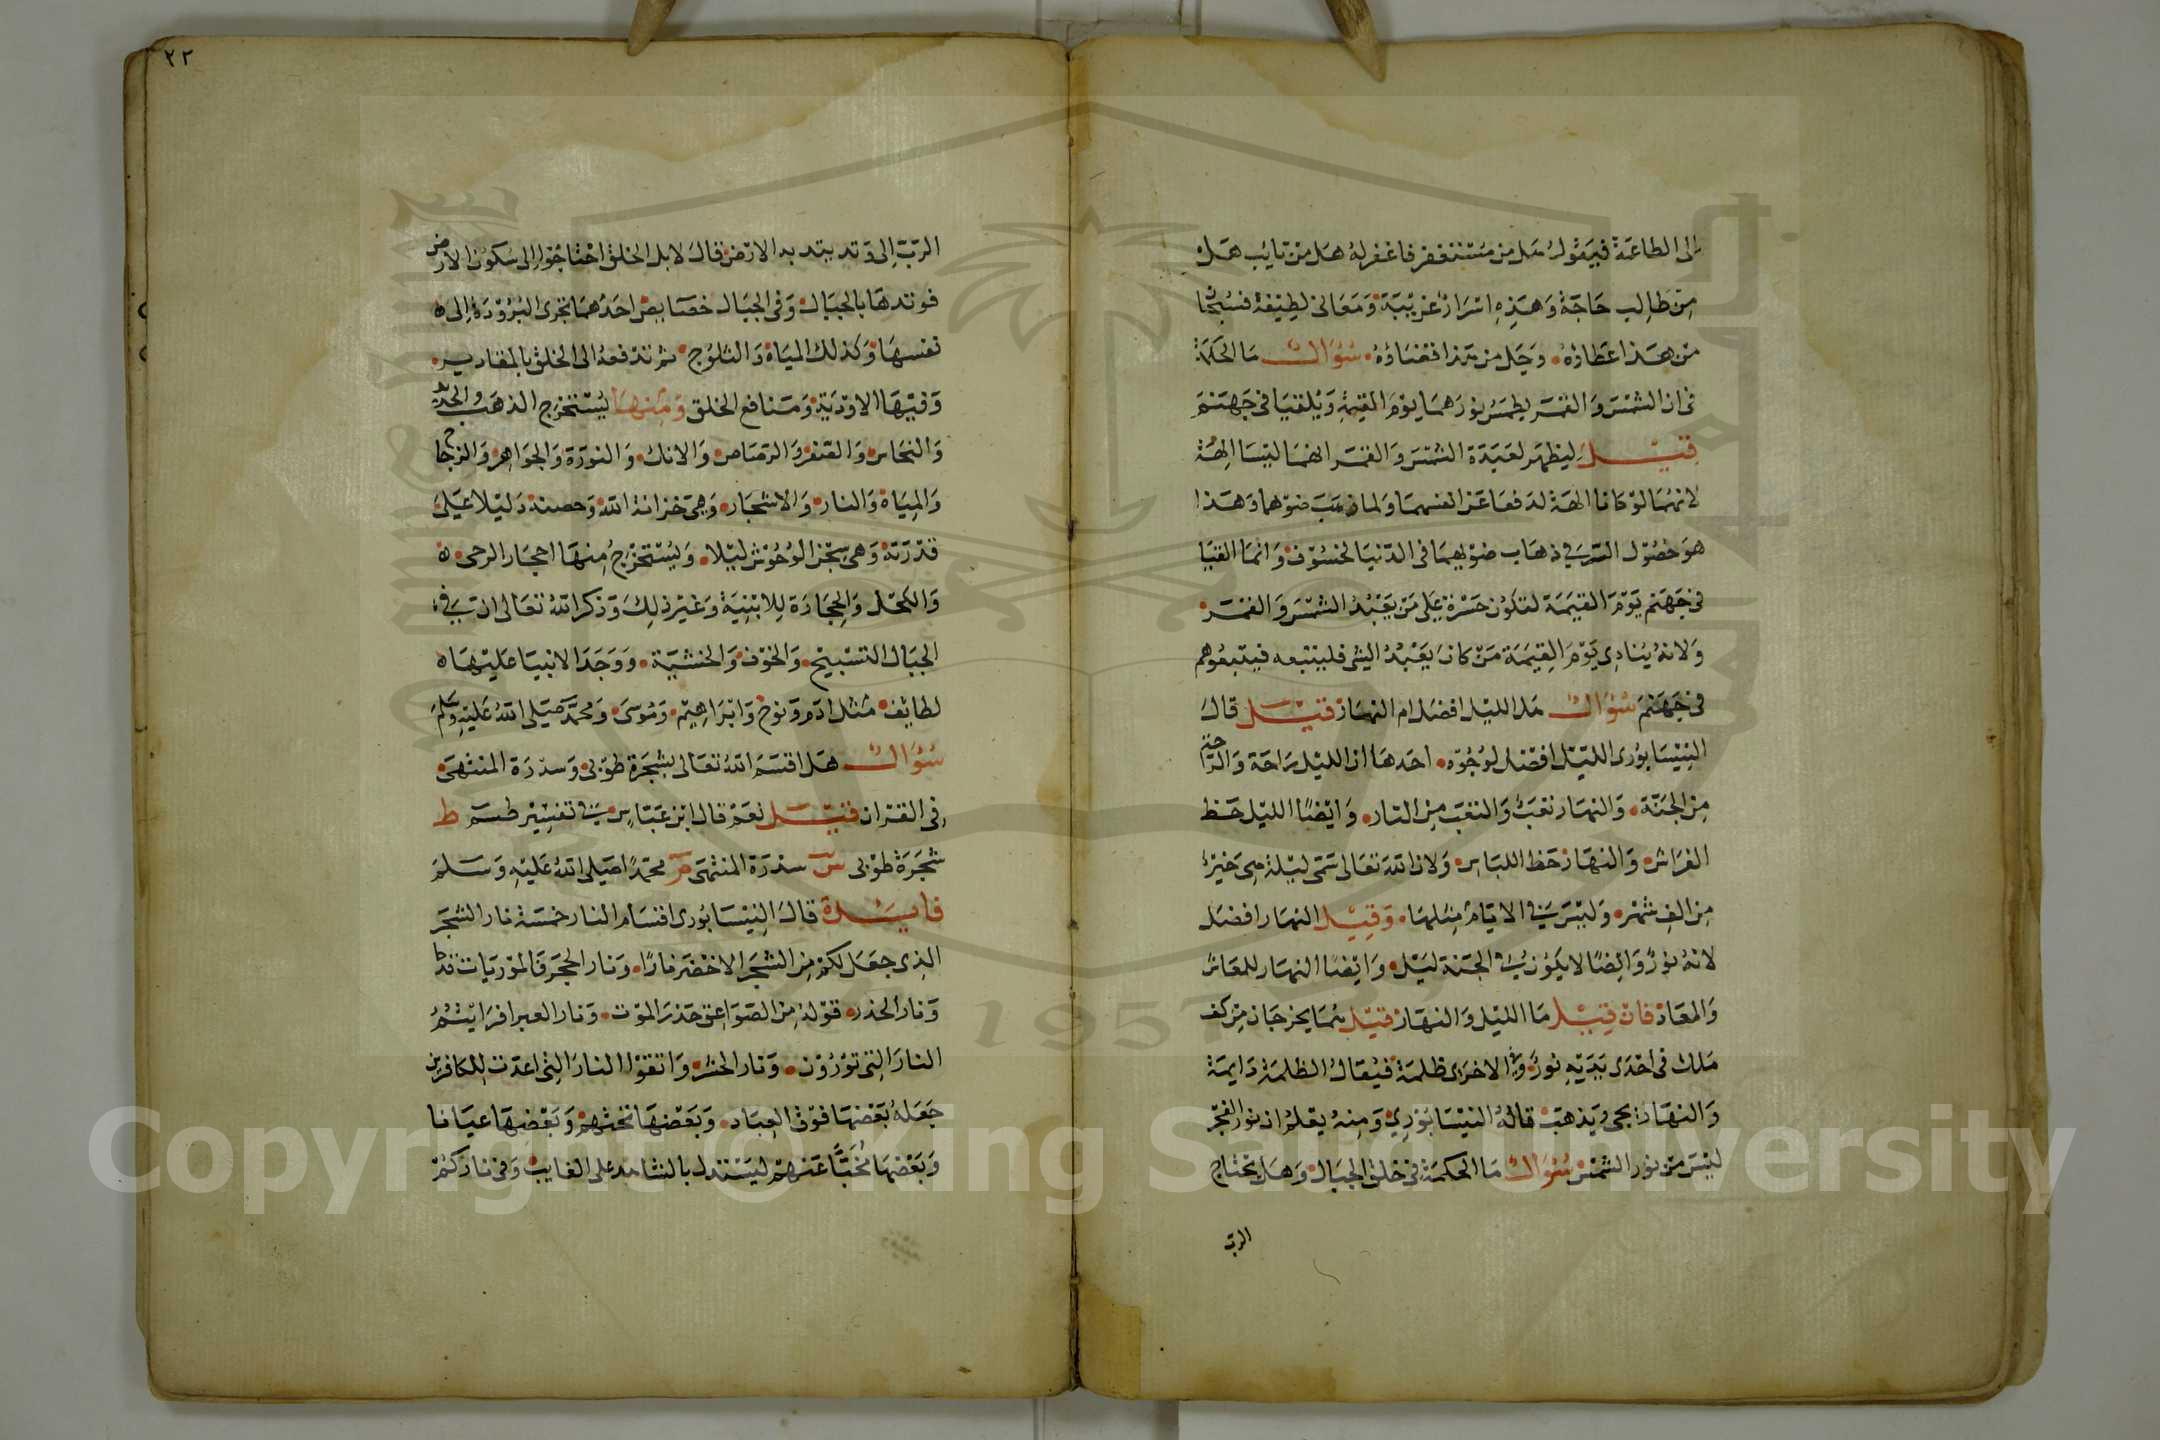 إلى الطاعة فيقول هل من مستغفر فاغفر له هل من تايب هل
من طالب حاجة وهذه اسرار غريبة ومعاني لطيفة فسبحان
من هذا عطاؤه وجل من هذا قضاؤه سؤال ما الحكمة
في ان الشمس والقمر يطمس نورهما يوم القيمة ويلقيا في جهنم
قيل ليظهر لعبدة الشمس والقمر انهما ليسا الهة
لانهما لو كانا الهة لدفعا عن انفسهما ولما ذهب ضوهما وهذا
هو حصول السر في ذهاب ضويهما في الدنيا لخسوف وانما القيا
في جهنم يوم القيمة لتكون حسرة على من يعبد الشمس والقمر
ولانه ينادى يوم القيمة من كان يعبد الشى فليتبعه فيتبعوهم
في جهنم سؤال هل الليل افضل ام النهار قيل قال
النيسابورى الليل افضل لوجوه احدها ان الليل راحة والراحة
من الجنة والنهار تعب والتعب من النار وايضا الليل حظ
الفراش والنهار حظ اللباس ولان الله تعالى سمى ليلة هى خير
من الف شهر وليس في الايام مثلها وقيل النهار افضل
لانه نور وايضا لا يكون في الجنة ليل وايضا النهار للمعاش
والمعاد فان قيل ما الليل والنهار قيل هما يخرجان من كف
ملك في احدى يديه نور وفي الاخرى ظلمة فيقال الظلمة دايمة
والنهار يجى ويذهب قاله النيسابوري ومنه يعلم ان نور الفجر
ليس من نور الشمس سؤال ما الحكمة في خلق الجبال وهل يحتاج
الرب
٢٢
الرب إلى وتد يتد به الارض قال لا بل الخلق احتاجوا إلى سكون الارض
فوتدها بالجبال وفي الجبال خصايص احدهما تجرى البرودة إلى
نفسها وكذلك المياه والثلوج ثم تدفعه الى الخلق بالمقادير
وفيها الاودية ومنافع الخلق ومنها يستخرج الذهب والحديد
والنحاس والصفر والرصاص والانك والنورة والجواهر والزجاج
والمياه والنار والاشجار وهي خزانة الله وحصنه دليلا على
قدرته وهى سجن الوحوش ليلا ويستخرج منها احجار الرحى
والكحل والحجارة للابنية وغير ذلك وذكر الله تعالى ان في
الجبال التسبيح والخوف والخشية ووجد الانبيا عليها
لطايف مثل ادم ونوح وابراهيم وموسى ومحمد صلى الله عليه وسلم
سؤال هل اقسم الله تعالى بشجرة طوبى وسدرة المنتهى
في القران قيل نعم قال ابن عباس في تفسير طسم ط
شجرة طوبى س سدرة المنتهى م محمدا صلى الله عليه وسلم
فايدة قال النيسابورى اقسام النار خمسة نار الشجر
الذى جعل لكم من الشجر الاخضر نارا ونار الحجر فالموريات قدحا
ونار الحذر قوله من الصواعق حذر الموت ونار افرايتم
النار التي تورون ونار واتقوا النار التي اعدت للكافرين
جعله بعضها فوق العباد وبعضها تحتهم وبعضها عيانا
وبعضها مخبا عنهم ليستدل بالشاهد على الغايب وفي نار
1957
Copyright © King Saud University